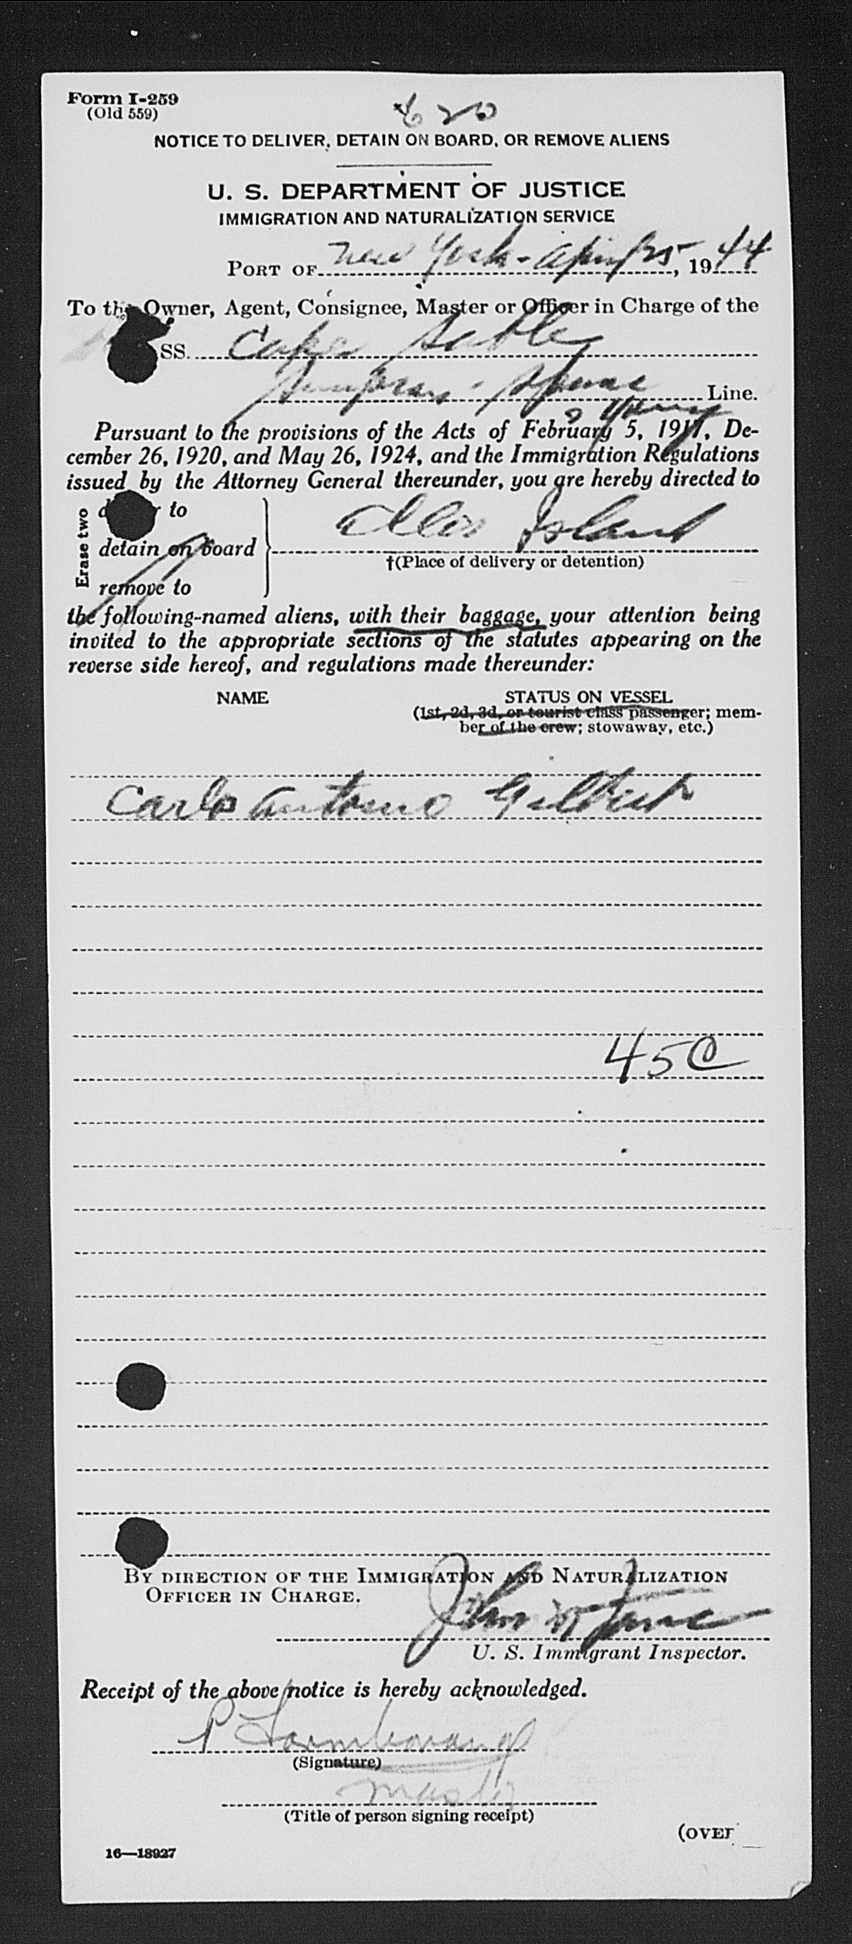 Form I-259
(Old 559)
620
NOTICE TO DELIVER, DETAIN ON BOARD, OR REMOVE ALIENS
U. S. DEPARTMENT OF JUSTICE
IMMIGRATION AND NATURALIZATION SERVICE
PORT OF New York - April 25, 1944
To the Owner, Agent, Consignee, Master or Officer in Charge of the
SS. Cape Sable
Simpson Spence
& Young Line.
Pursuant to the provisions of the Acts of February 5, 1917, De-
cember 26, 1920, and May 26, 1924, and the Immigration Regulations
issued by the Attorney General thereunder, you are hereby directed to
Erase two
to
detain on board
remove to
Ellis Island
†(Place of delivery or detention)
the following-named aliens, with their baggage, your attention being
invited to the appropriate sections of the statutes appearing on the
reverse side hereof, and regulations made thereunder:
NAME STATUS ON VESSEL
(1st, 2d, 3d, or tourist class passenger; mem-
ber of the crew; stowaway, etc.)
Carlo Antonio
45C
BY DIRECTION OF THE IMMIGRATION AND NATURALIZATION
OFFICER IN CHARGE.
John W
U. S. Immigrant Inspector.
Receipt of the above notice is hereby acknowledged.
P
(Signature)
Master
(Title of person signing receipt)
(OVER
16—18927